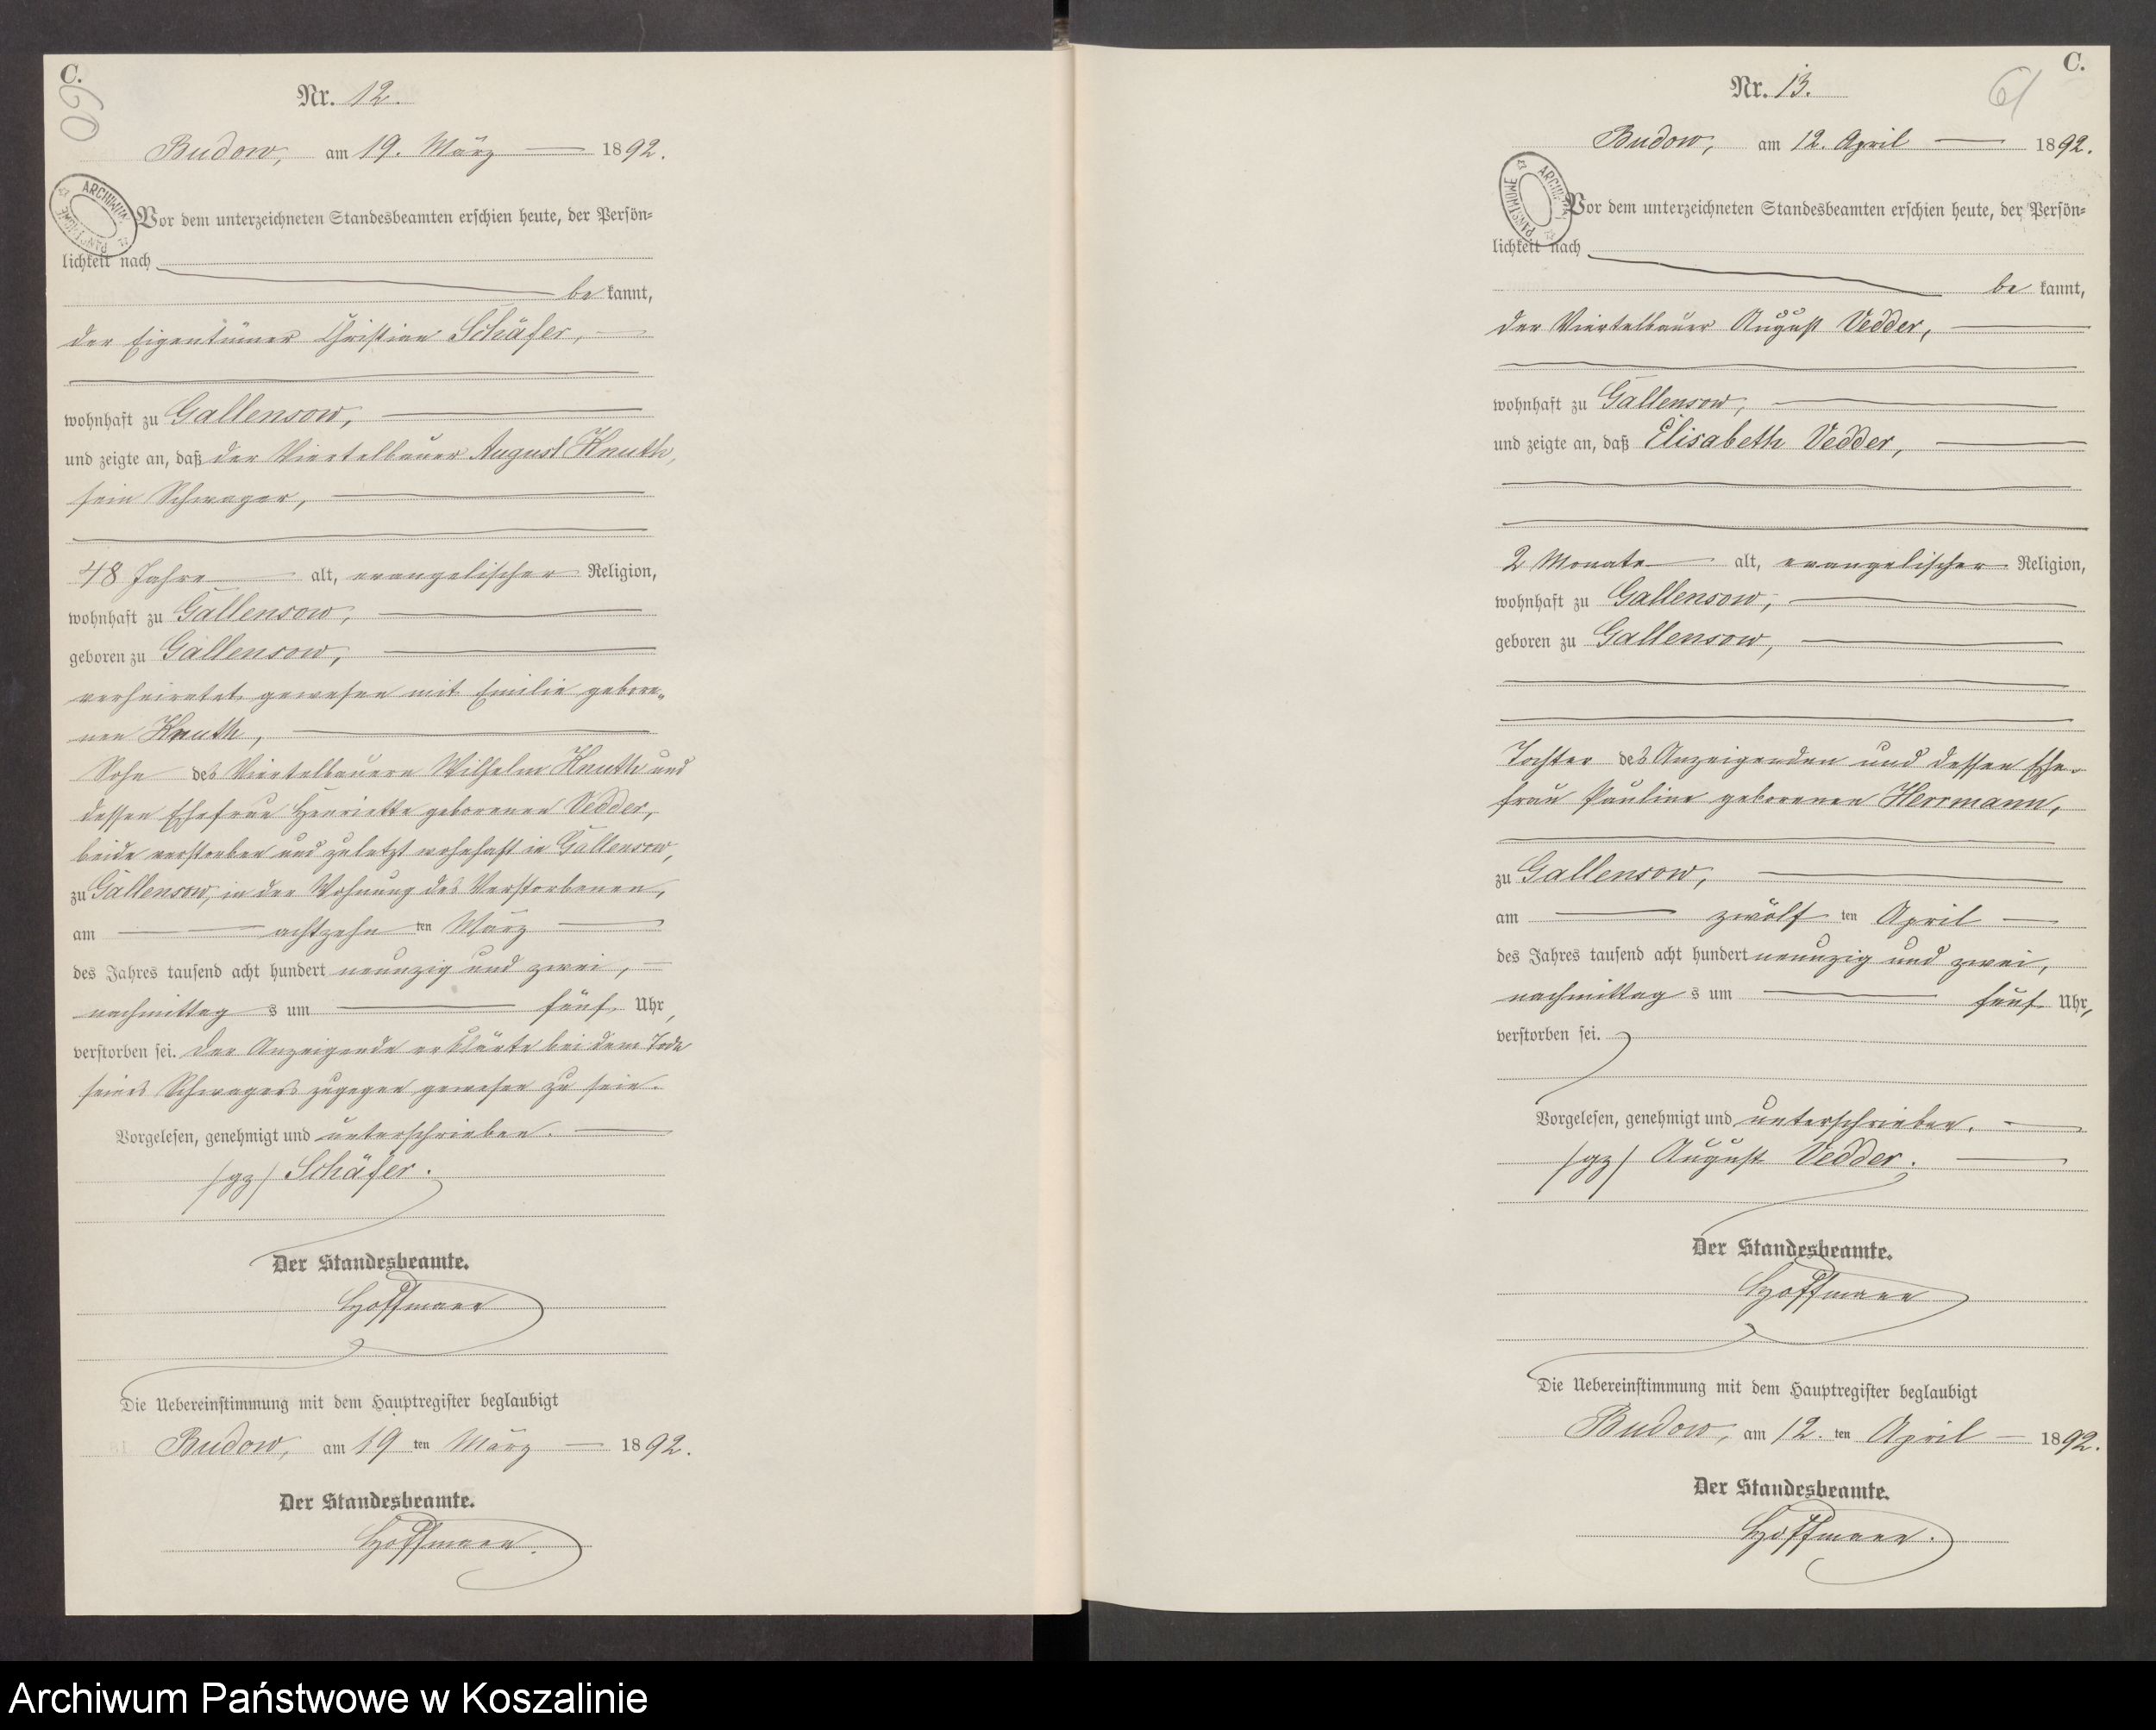 C.
60
Nr. 12.
Budow, am 19. März 1892.
ARCHIWUM PAŃSTWOWE
Vor dem unterzeichneten Standesbeamten erschien heute, der Persön=
lichkeit nach
be kannt,
der Eigentümer Christian Schäfer,
wohnhaft zu Gallensow,
und zeigte an, daß der Viertelbauer August Knuth,
sein Schwager,
48 Jahre alt, evangelischer Religion,
wohnhaft zu Gallensow,
geboren zu Gallensow,
verheiratet gewesen mit Emilie gebore-
nen Knuth,
Sohn des Viertelbauern Wilhelm Knuth und
dessen Ehefrau Henriette geborenen Vedder,
beide verstorben und zuletzt wohnhaft in Gallensow,
zu Gallensow, in der Wohnung des Verstorbenen,
am achtzehn ten März
des Jahres tausend acht hundert neunzig und zwei,
nachmittag s um fünf Uhr,
verstorben sei. Der Anzeigende erklärte bei dem Tode
seines Schwagers zugegen gewesen zu sein.
Vorgelesen, genehmigt und unterschrieben.
/gz/ Schäfer.
Der Standesbeamte.
Hoffmann
Die Uebereinstimmung mit dem Hauptregister beglaubigt
Budow, am 19 ten März 1892.
Der Standesbeamte.
Hoffmann.
C.
61
Nr. 13.
Budow, am 12. April 1892.
ARCHIWUM PAŃSTWOWE
Vor dem unterzeichneten Standesbeamten erschien heute, der Persön=
lichkeit nach
be kannt,
der Viertelbauer August Vedder,
wohnhaft zu Gallensow,
und zeigte an, daß Elisabeth Vedder,
2 Monate alt, evangelischer Religion,
wohnhaft zu Gallensow,
geboren zu Gallensow,
Tochter des Anzeigenden und dessen Ehe-
frau Pauline geborenen Herrmann,
zu Gallensow,
am zwölf ten April
des Jahres tausend acht hundert neunzig und zwei,
nachmittag s um fünf Uhr,
verstorben sei.
Vorgelesen, genehmigt und unterschrieben.
/gz/ August Vedder.
Der Standesbeamte.
Hoffmann
Die Uebereinstimmung mit dem Hauptregister beglaubigt
Budow, am 12. ten April 1892.
Der Standesbeamte.
Hoffmann.
Archiwum Państwowe w Koszalinie